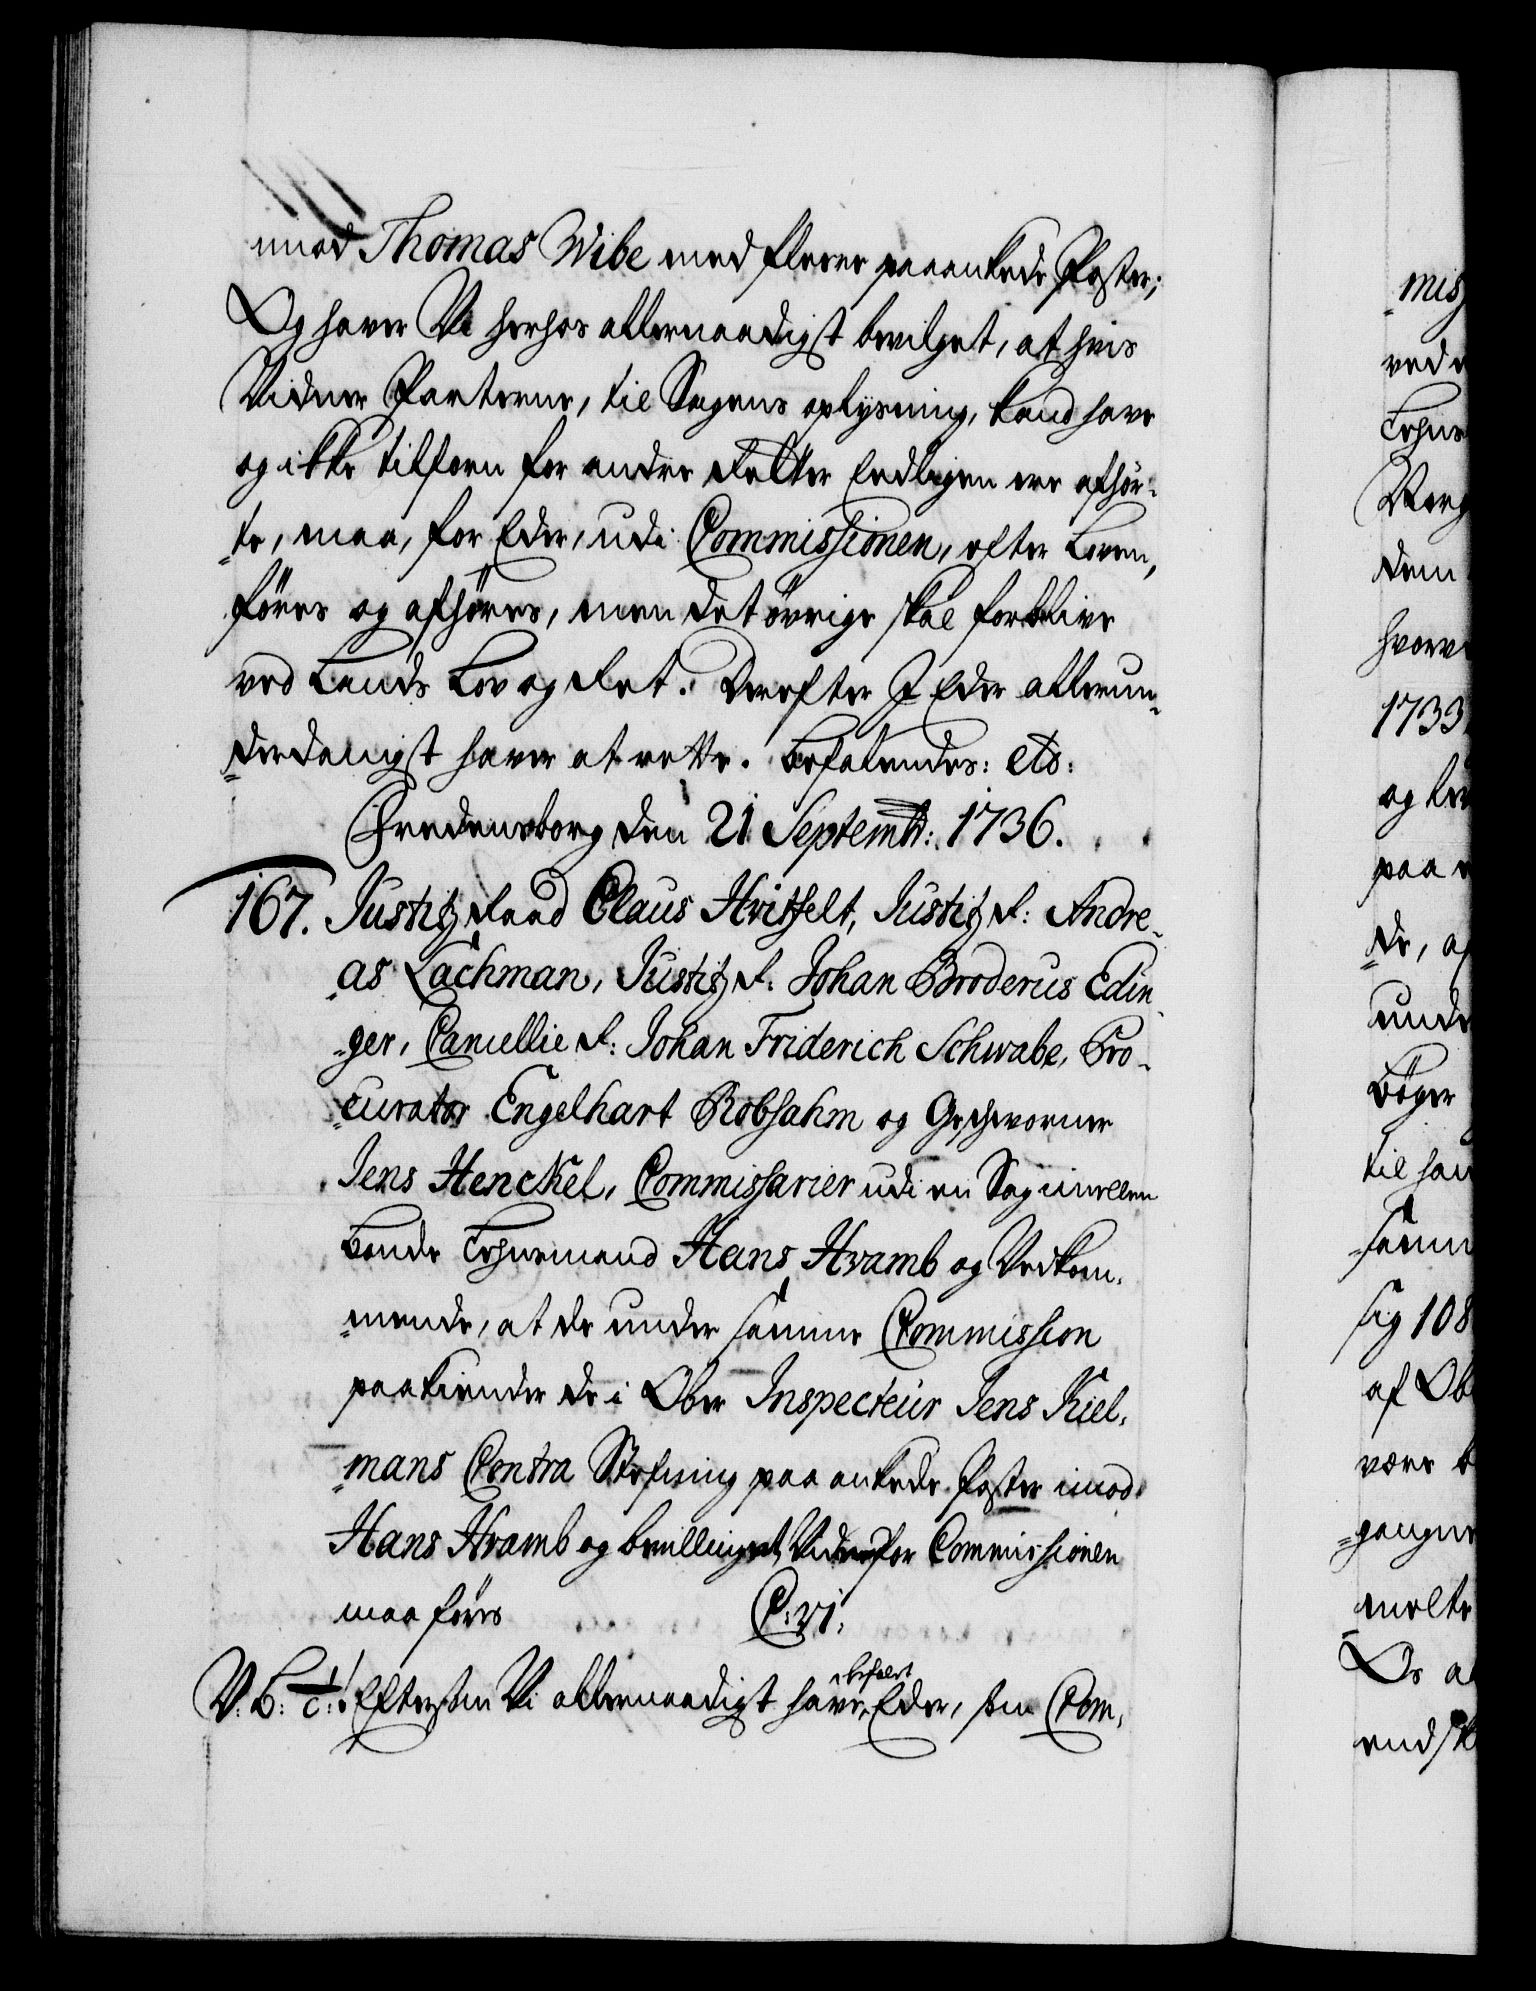 imod Thomas Wibe med fleere paaankede Poster;
Og haver Vi herhos allernaadigst bevilget, at hvis
Vidner Parterne, til Sagens oplysning, kand have
og ikke tilforn for andre Retter Eedligen ere afhör-
-te, maa, for Eder, udi Commissionen, efter Loven,
föres og afhöres, men det övrige skal forblive
ved Lands Lov og Ret. Derefter I Eder allerun-
-derdanigst haver at rette. Befalendes: etc:
Fredensborg den 21 Septembr: 1736.
167. Justitz Raad Claus Hvitfelt, Justitz R: Andre-
-as Lachman, Justitz R. Johan Broderus Edin-
-ger, Cancellie R: Johan Friderich Schwabe, Pro-
-curator Engelhart Robsahm og Geschworner
Jens Henckel, Commissarier udi en Sag imellem
Bonde Lehnsmand Hans Hvamb og Vedkom-
-mende, at de under samme Commission
paakiender de i Ober Inspecteur Jens Kiel-
-mans Contra Stefning paa ankede Poster imod
Hans Hvamb og bevillinget Vidner for Commissionen
maa föres C: VI.
V. G: T: Eftersom Vi allernaadigst have befalet Eder, som Com-

mis
ved
Lehns
Berg
dem
hvorv
1733
og
paa
-de, af
unde
Bøger
til han
-samm
sig 108
af Ob
være
-gangne
-melte
Os al
end sk